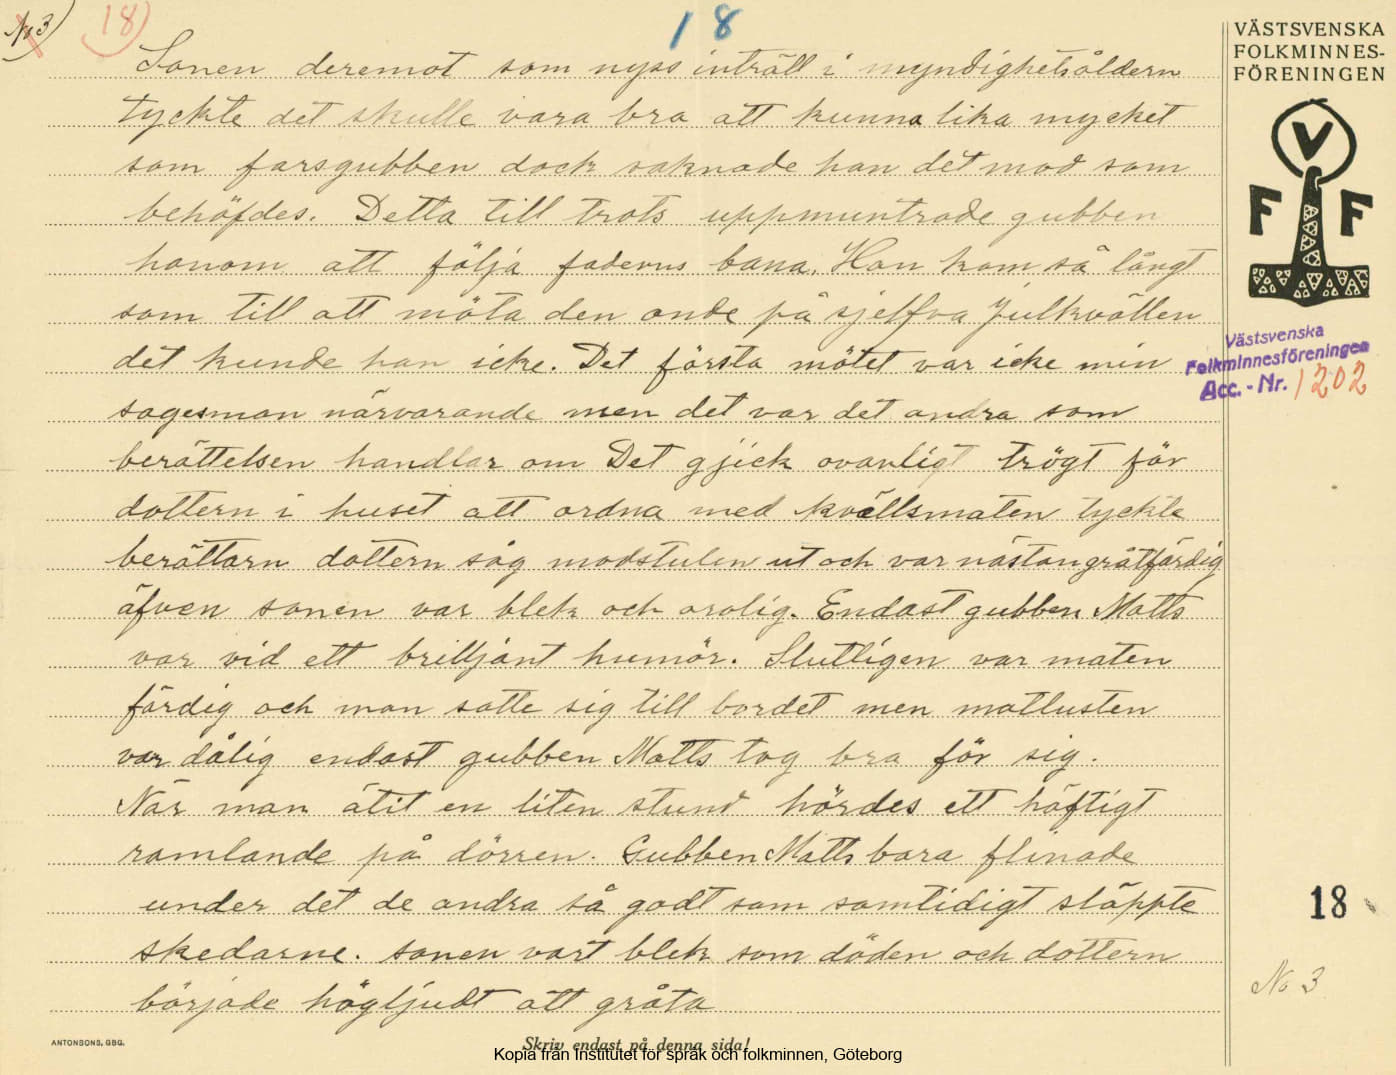 No 3)
18)
18
Sonen deremot som nyss inträtt i myndighetsåldern
tyckte det skulle vara bra att kunna lika mycket
som farsgubben dock saknade han det mod som
behöfdes. Detta till trots uppmuntrade gubben
honom att följa faderns bana. Han kom så långt
som till att möta den onde på sjelfva Julkvällen
det kunde han icke. Det första mötet var icke min
sagesman närvarande men det var det andra som
berättelsen handlar om Det gjick ovanligt trögt för
dottern i huset att ordna med kvällsmaten tyckte
berättarn dottern såg modstulen ut och var nästan gråtfärdig
äfven sonen var blek och orolig. Endast gubben Matts
var vid ett brilljant humör. Slutligen var maten
färdig och man satte sig till bordet men matlusten
var dålig endast gubben Matts tog bra för sig.
När man ätit en liten stund hördes ett häftigt
ramlande på dörren. Gubben Matts bara flinade
under det de andra så godt som samtidigt släppte
skedarne. sonen vart blek som döden och dottern
började högljudt att gråta
VÄSTSVENSKA
FOLKMINNES-
FÖRENINGEN
V
F F
Västsvenska
Folkminnesföreningen
Acc.-Nr. 1202
18
No 3
ANTONSONS, GBG.
Skriv endast på denna sida!
Kopia från Institutet för språk och folkminnen, Göteborg